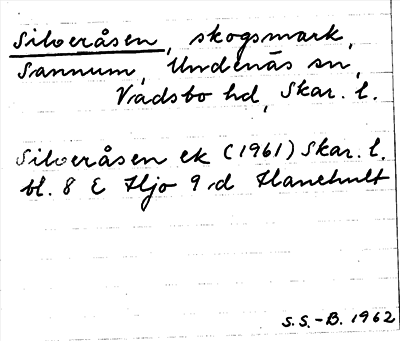 Silveråsen, skogsmark,
Sannum, Undenäs sn,
Vadsbo hd, Skar. l.
Silveråsen ek (1961) Skar. l.
bl. 8 E Hjo 9 d Hanehult
S.S.-B. 1962